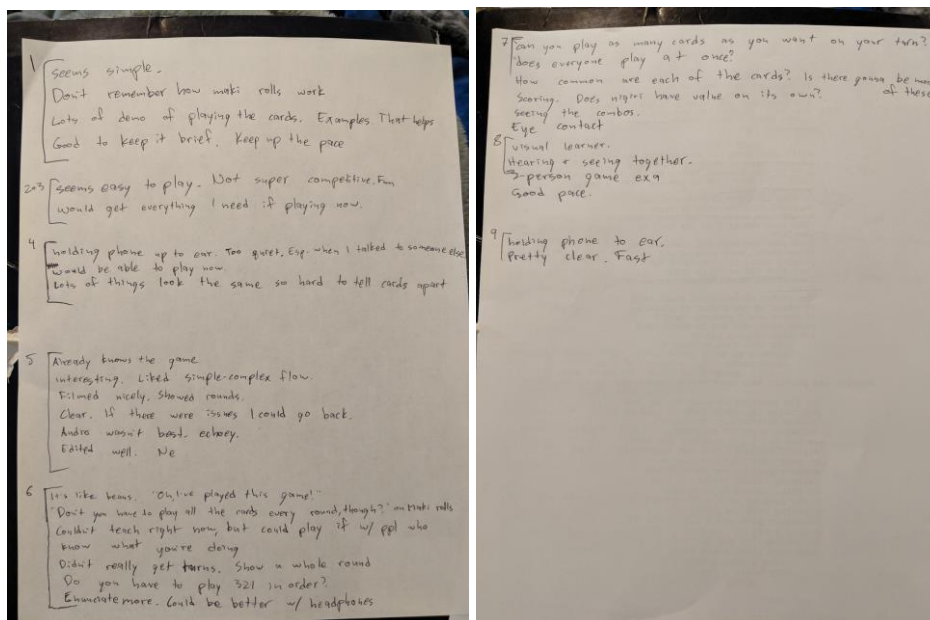 1
Seems simple.
Don't remember how maki rolls work
Lots of demo of playing the cards. Examples That helps
Good to keep it brief. Keep up the pace
2+3
Seems easy to play. Not super competitive. Fun
Would get everything I need if playing now.
4
holding phone up to ear. Too quiet. Esp. when I talked to someone else
would be able to play now.
Lots of things look the same so hard to tell cards apart
5
Already knows the game
interesting. Liked simple-complex flow.
Filmed nicely. Showed rounds.
Clear. If there were issues I could go back.
Audio wasn't best. echoey.
Edited well. Ne
6
It's like "Oh, I've played this game!"
"Don't you have to play all the cards every round, though?" on Maki rolls
Couldn't teach right now, but could play if w/ ppl who
know what you're doing
Didn't really get turns. Show a whole round
Do you have to play 321 in order?
Enunciate more. Could be better w/ headphones
7
Can you play as many cards as you want on your turn?
Does everyone play at once?
How common are each of the cards? Is there gonna be
of these
Scoring. Does nigiri have value on its own?
Seeing the combos.
Eye contact
8
Visual learner.
Hearing + seeing together.
2-person game exa
Good pace.
9
holding phone to ear.
Pretty clear. Fast